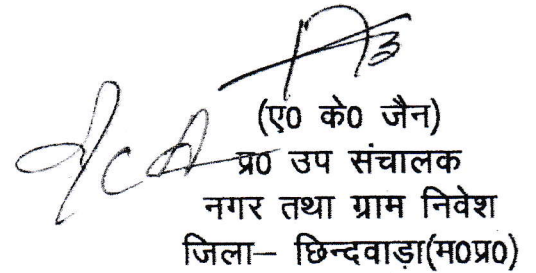 (ए0 के0 जैन)
प्र0 उप संचालक
नगर तथा ग्राम निवेश
जिला– छिन्दवाड़ा(म0प्र0)